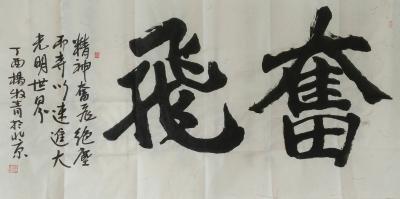 奮飛
精神奮飛絕塵
而奔以速進大
光明世界
丁酉楊牧青於北京